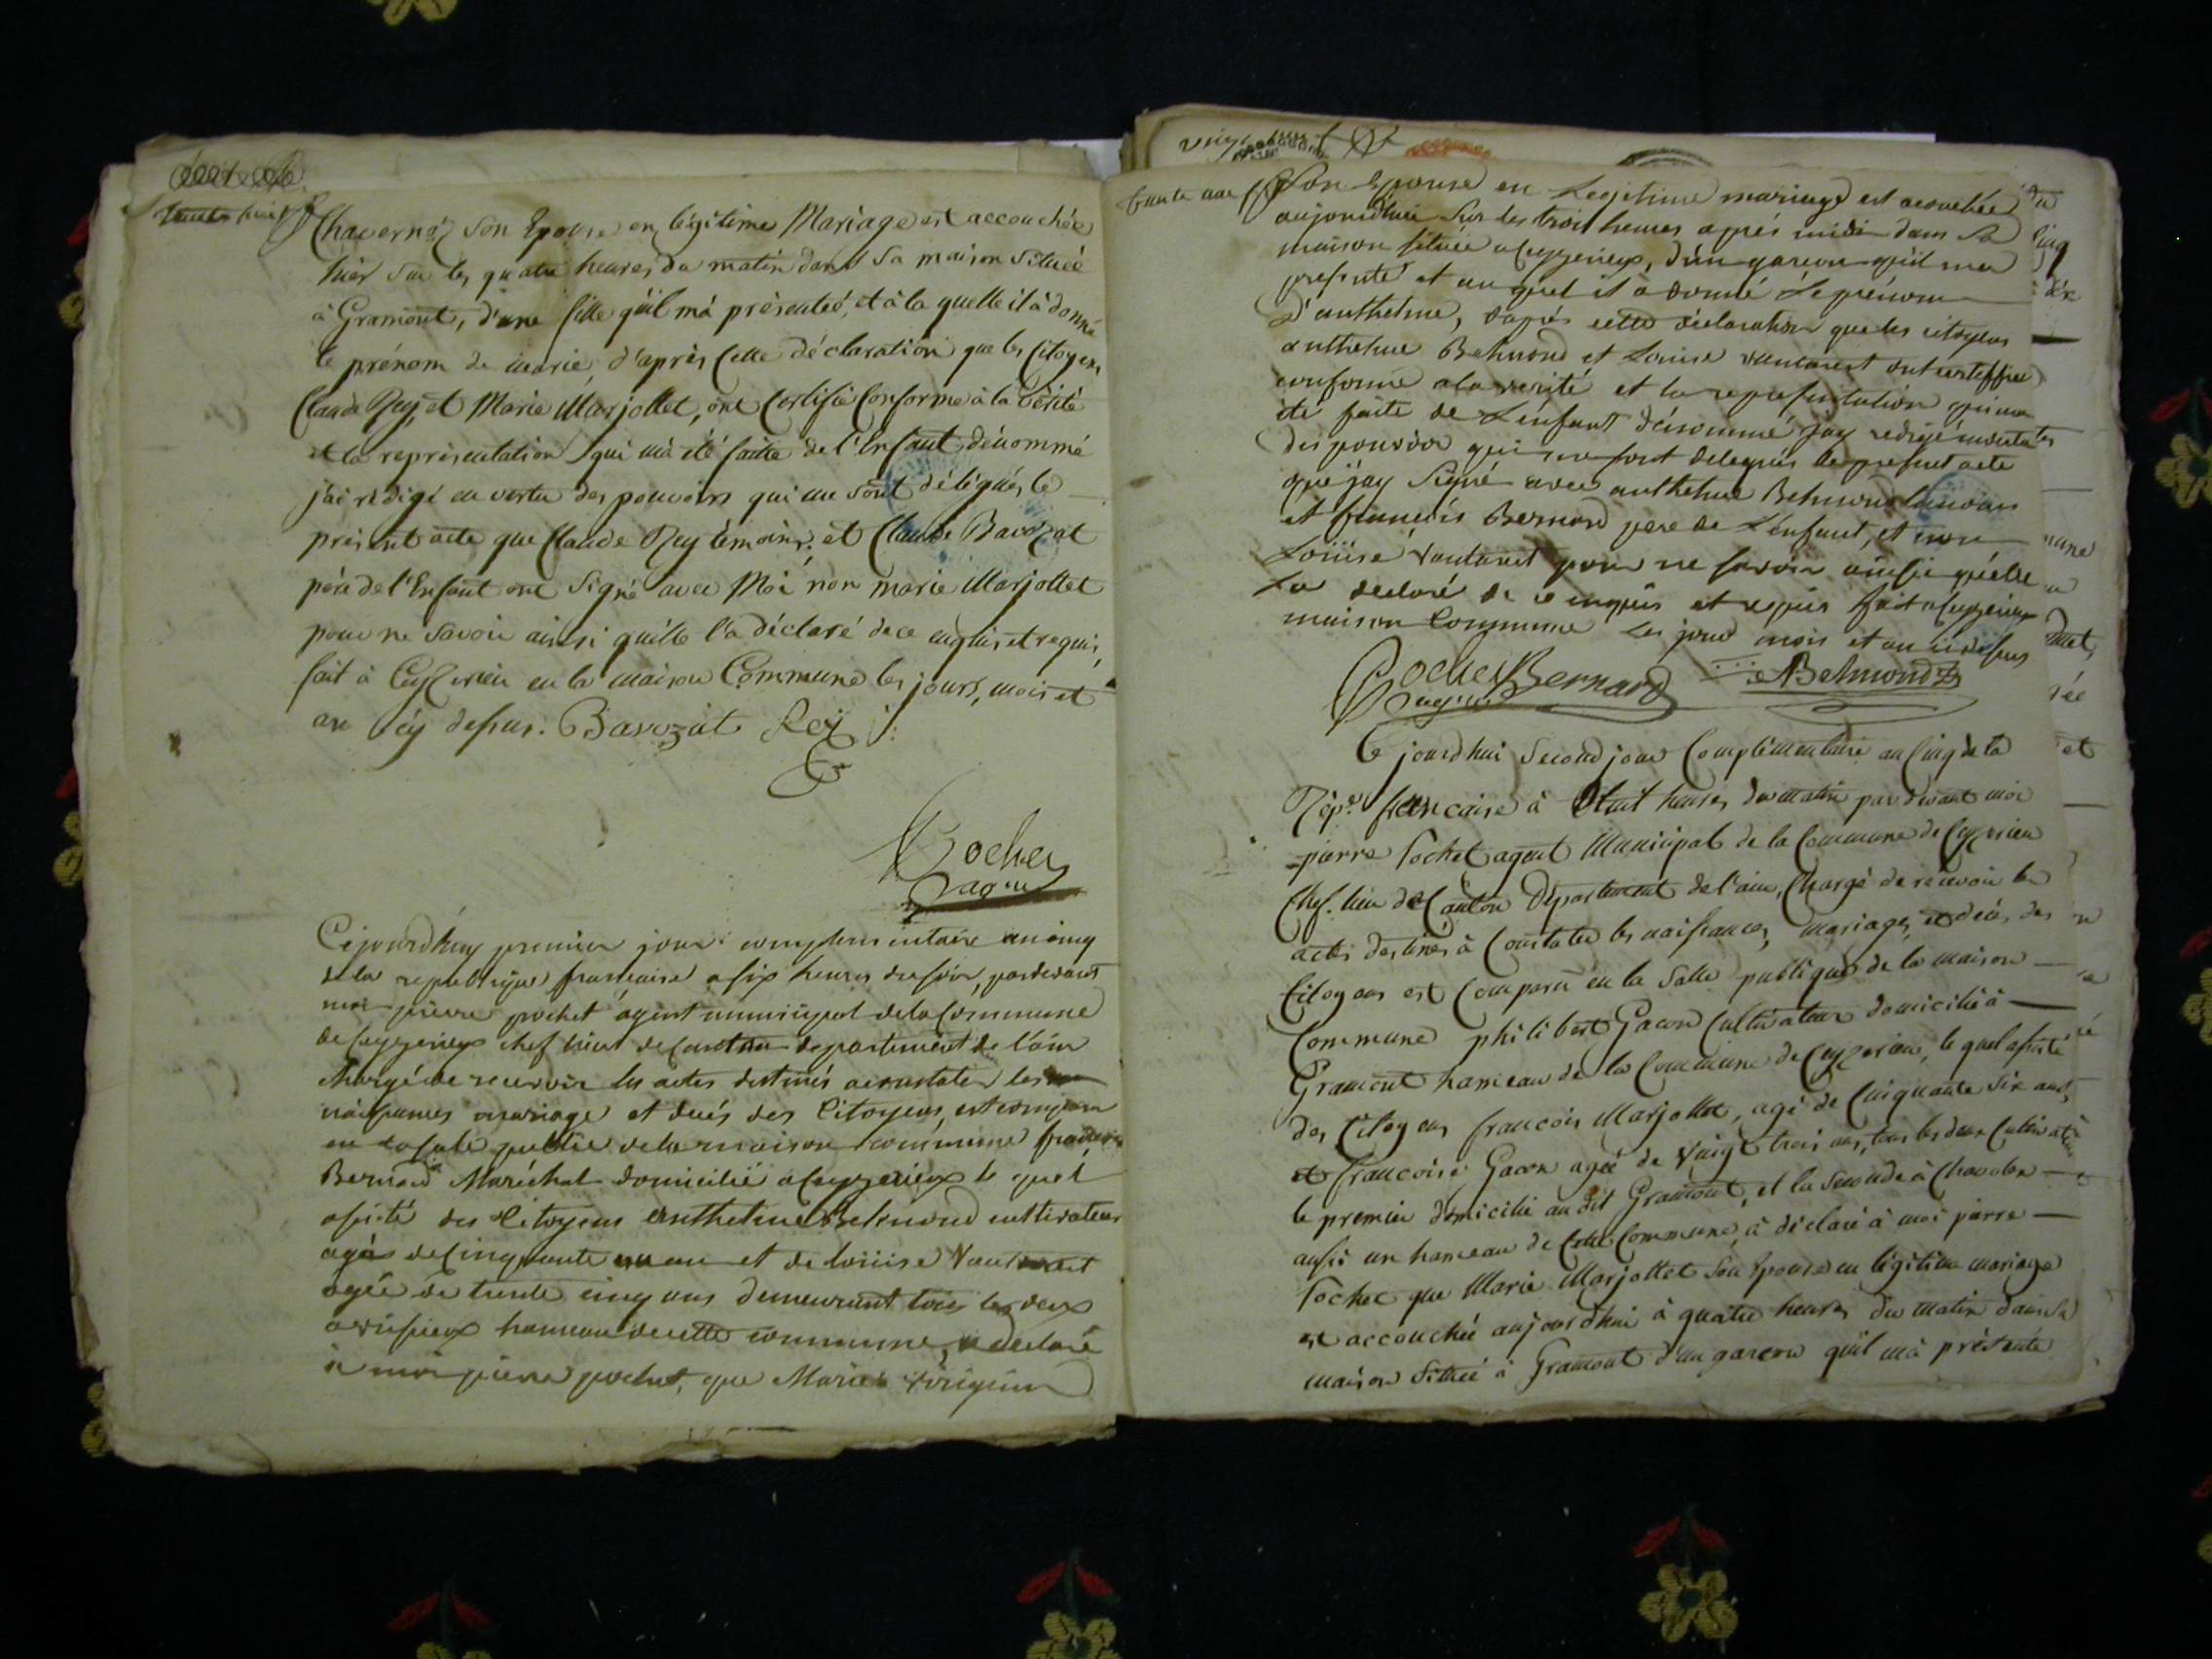 Chavernoz son Epouse en légitime Mariage est accouchée
hier sur les quatre heures du matin dans sa maison située
à Gramont, d'une fille qu'il m'a présenteé, et à la quelle il à donné
le prénom de marie, d'après cette déclaration que les Citoyens
Claude Rey et Marie Marjollet, ont Certifié Conforme à la Vérité
et la représentation qui m'a été faitte de l'Enfant dénommé
j'ai rédigé en vertu des pouvoirs qui me sont délégués le
présent acte que Claude Rey témoins et Claude Bavozat
père de l'Enfant ont Signé avec Moi non marie Marjollet
pour ne Savoir ainsi quelle l'a déclaré de ce enquis et requis,
fait à Ceyzerieu en la maison Commune les jours, mois et
an cy dessus. Bavozat Rey
Pochet
agent
Cejourdhuy premier jour complementaire an cinq
de la republique francaise a six heures du soir, pardevant
moi pierre pochet agent municipal de la Commune
de Ceyzerieux chef lieu de Canton departement de l'ain
chargé de recevoir les actes destinés a constater les
naissances mariage et decés des Citoyens, est comparu
en la sale publie de la maison commune françois
Bernard Maréchal domicilié a Ceyzerieux le quel
assisté des Citoyens anthelme Belmond cultivateur
agés de Cinquante un an et de louise Vautaret
agée de trente cinq ans demeurant tous les deux
a hameau de cette commune, a declaré
à moi pierre pochet, que Marie
trente une
Son Epouse en Legitime mariage est accouchée
aujourdhuie sur les trois heures aprés midi dans sa
maison située a Ceyzerieux, d'un garcon qu'il ma
présenté et au quel il a donné Le prénom
d'anthelme, daprés cette déclaration que les citoyens
anthelme Belmond et Louise vautaret ont certiffié
conforme a la verité et la representation qui ma
été faite de L'enfant dénommé jay redigé en vertu
des pouvoir qui me sont delegués le present acte
que jay Signé avec anthelme Belmond temoins
et francois Bernard pere de L'enfant, et non
Louise Vautaret pour ne savoir ainsie quelle
La declaré de ce enquis et requis fait a Ceyzerieux
maison Commune Les jour mois et an ci dessus
Pochet Bernard ABelmond
agent
Ce jourdhui Second jour Complémentaire an Cinq de la
Répe. française à Huit heures du matin par devant moi
pierre Pochet agent Municipal de la Commune de Ceyzerieu
Chef. lieu de Canton Département de l'ain, Chargé de recevoir les
actes destinés à Constater les naissances, mariages et décès des
Citoyens est Comparu en la Salle publique de la maison
Commune philibert Gacon Cultivateur domicilié à
Gramont hameau de la Commune de Ceyzerieu, le quel assisté
des Citoyens francois Marjollet, agé de Cinquante Six ans,
et francoise Gacon agée de Vingt trois ans, tous les deux Cultivateurs
le premier domicilié au dit Gramont, et la Seconde à Chavolex
aussi un hameau de Cette Commune, à déclaré à moi pierre
Pochet que Marie Marjollet Son Epouse en légitime mariage
est accouchée aujourdhui à quatre heures du matin dans sa
maison Située à Gramont d'un garcon qu'il m'a présenté